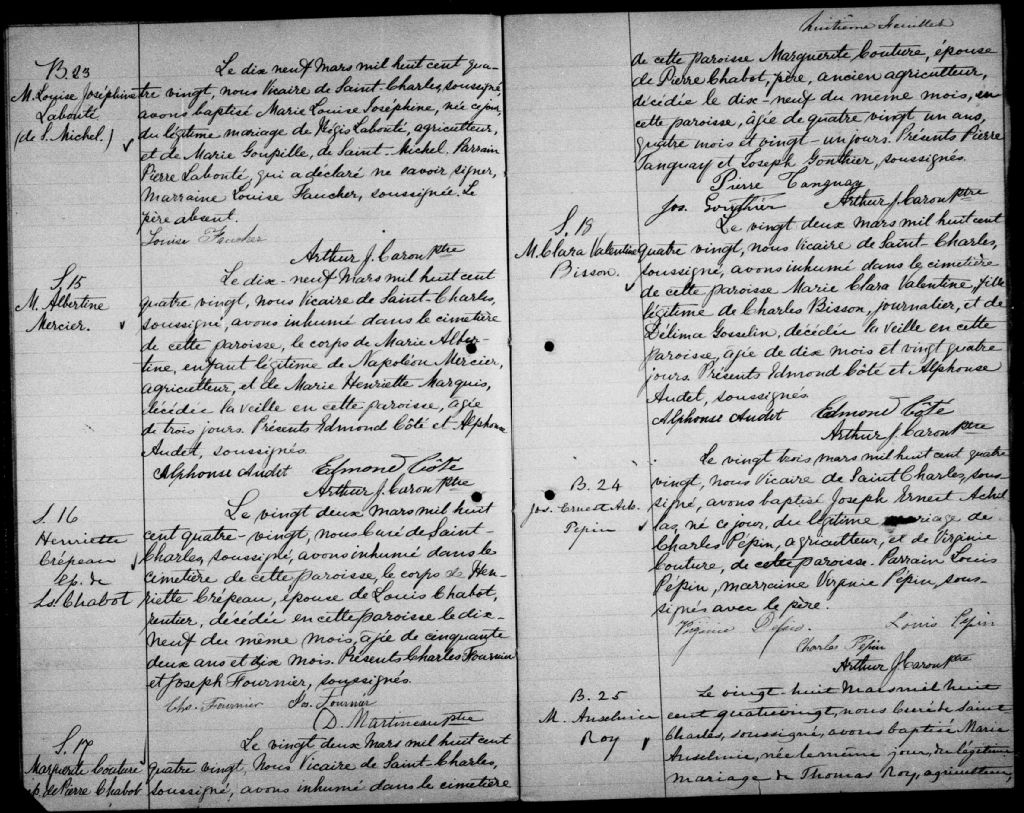 B. 23
M. Louise Joséphine
Labonté
(de S. Michel.)
Le dix neuf Mars mil huit cent qua-
tre vingt, nous Vicaire de Saint-Charles, soussigné,
avons baptisé Marie Louise Joséphine, née ce jour,
du légitime mariage de Régis Labonté, agriculteur,
et de Marie Goupille, de Saint-Michel. Parrain
Pierre Labonté, qui a déclaré ne savoir signer,
Marraine Louise Faucher, soussignée. Le
père absent.
Louise Faucher
Arthur J. Caron ptre
S. 15
M. Albertine
Mercier.
Le dix-neuf Mars mil huit cent
quatre vingt, nous Vicaire de Saint-Charles,
soussigné, avons inhumé dans le cimetière
de cette paroisse, le corps de Marie Alber-
tine, enfant légitime de Napoléon Mercier,
agriculteur, et de Marie Henriette Marquis,
décédée la veille en cette paroisse, agée
de trois jours. Présents Edmond Côté et Alphonse
Audet, soussignés.
Alphonse Audet Edmond Côté
Arthur J. Caron ptre
S. 16
Henriette
Crépeau
ép. de
Ls. Chabot
Le vingt deux Mars mil huit
cent quatre-vingt, nous Curé de Saint-
Charles, soussigné, avons inhumé dans le
cimetière de cette paroisse, le corps de Hen-
riette Crépeau, épouse de Louis Chabot,
rentier, décédée en cette paroisse le dix-
neuf du même mois, âgée de cinquante
deux ans et dix mois. Présents Charles Fournier
et Joseph Fournier, soussignés.
Chs. Fournier Jos. Fournier
D. Martineau ptre
S. 17
Marguerite Couture
ép. de Pierre Chabot
Le vingt deux Mars mil huit cent
quatre vingt, Nous Vicaire de Saint-Charles,
soussigné, avons inhumé dans le cimetière
huitième Feuillet
de cette paroisse Marguerite Couture, épouse
de Pierre Chabot, père, ancien agriculteur,
décédée le dix-neuf du même mois, en
cette paroisse, âgée de quatre vingt un ans,
quatre mois et vingt-un jours. Présents Pierre
Tanguay et Joseph Gonthier, soussignés.
Pierre Tanguay
Jos. Gonthier Arthur J. Caron ptre
S. 18
M. Clara Valentine
Bisson.
Le vingt deux Mars mil huit cent
quatre vingt, nous Vicaire de Saint-Charles,
soussigné, avons inhumé dans le cimetière
de cette paroisse Marie Clara Valentine, fille
légitime de Charles Bisson, journalier, et de
Délima Gosselin, décédée la veille en cette
paroisse, agée de dix mois et vingt quatre
jours. Présents Edmond Côté et Alphonse
Audet, soussignés.
Alphonse Audet Edmond Côté
Arthur J. Caron ptre
B. 24
Jos. Ernest
Pépin
Le vingt trois mars mil huit cent quatre
vingt, nous Vicaire de Saint Charles, sous-
signé, avons baptisé Joseph Ernest Achil-
las, né ce jour, du légitime mariage de
Charles Pépin, agriculteur, et de Virginie
Couture, de cette paroisse. Parrain Louis
Pépin, marraine Virginie Pépin, sous-
signés avec le père.
Virginie Pépin. Louis Pépin
Charles Pépin
Arthur J Caron ptre
B. 25
M. Anselmie
Roy
Le vingt huit Mars mil huit
cent quatre vingt, nous Curé de Saint
Charles, soussigné, avons baptisé Marie
Anselmie, née le même jour, du légitime
mariage de Thomas Roy, agriculteur,